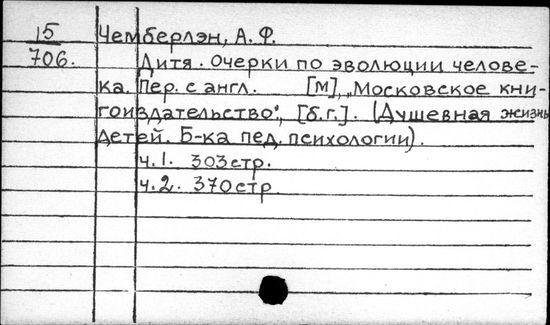 15 Чемберлэн, А. Ф.
706. Дитя. Очерки по эволюции челове-
ка. Пер. с англ. [М], „Московское кни-
гоиздательство", [б.г.]. (Душевная жизнь
детей. Б-ка пед. психологии).
ч.1. 303стр.
ч.2. 370стр.